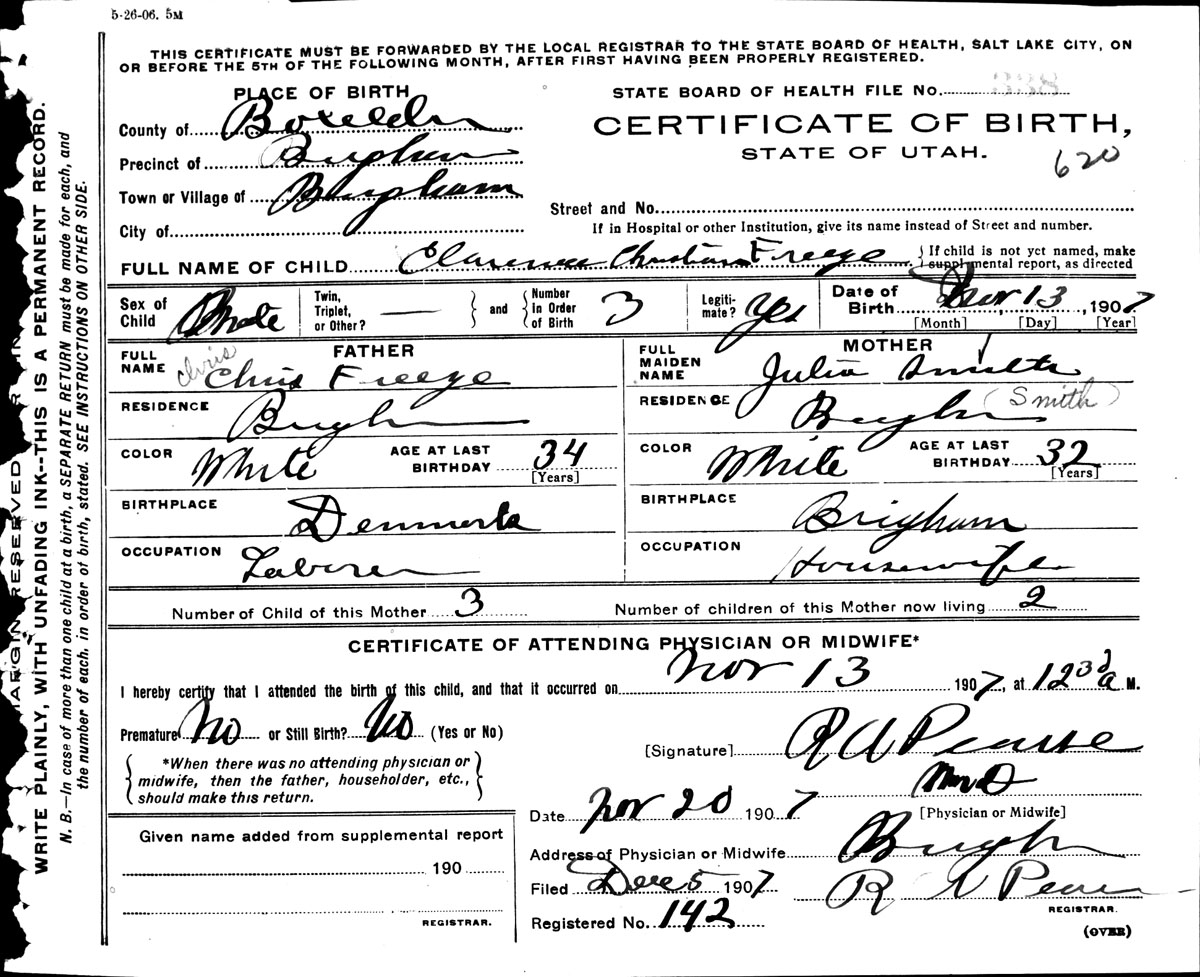 5-26-06. 5M
THIS CERTIFICATE MUST BE FORWARDED BY THE LOCAL REGISTRAR TO THE STATE BOARD OF HEALTH, SALT LAKE CITY, ON
OR BEFORE THE 5TH OF THE FOLLOWING MONTH, AFTER FIRST HAVING BEEN PROPERLY REGISTERED.
PLACE OF BIRTH
STATE BOARD OF HEALTH FILE No.
County of Boxelder
CERTIFICATE OF BIRTH,
Precinct of Brigham
STATE OF UTAH.
620
Town or Village of Brigham
Street and No.
City of
If in Hospital or other Institution, give its name instead of Street and number.
FULL NAME OF CHILD Clarence Christian Freeze { If child is not yet named, make
supplemental report, as directed
Sex of Child Male Twin, Triplet, or Other? — } and { Number In Order of Birth 3 Legiti-mate? Yes Date of Birth Nov 13, 1907
[Month] [Day] [Year]
FATHER
MOTHER
FULL NAME Chris Chris Freeze
FULL MAIDEN NAME Julia Smith
RESIDENCE Brigh
RESIDENCE Brigh (Smith)
COLOR White AGE AT LAST BIRTHDAY 34 [Years]
COLOR White AGE AT LAST BIRTHDAY 32 [Years]
BIRTHPLACE Denmark
BIRTHPLACE Brigham
OCCUPATION Laborer
OCCUPATION Housewife
Number of Child of this Mother 3 Number of children of this Mother now living 2
CERTIFICATE OF ATTENDING PHYSICIAN OR MIDWIFE*
I hereby certify that I attended the birth of this child, and that it occurred on Nov 13 1907, at 12 30 a M.
Premature No or Still Birth? No (Yes or No)
[Signature] R A Pearse
*When there was no attending physician or
midwife, then the father, householder, etc.,
should make this return.
M D
[Physician or Midwife]
Date Nov 20 1907
Given name added from supplemental report
Address of Physician or Midwife Brigh
190
Filed Dec 5 1907 R A Pearse
REGISTRAR.
REGISTRAR.
Registered No. 142
(OVER)
MARGIN RESERVED
WRITE PLAINLY, WITH UNFADING INK--THIS IS A PERMANENT RECORD.
N. B.—In case of more than one child at a birth, a SEPARATE RETURN must be made for each, and
the number of each, in order of birth, stated. SEE INSTRUCTIONS ON OTHER SIDE.